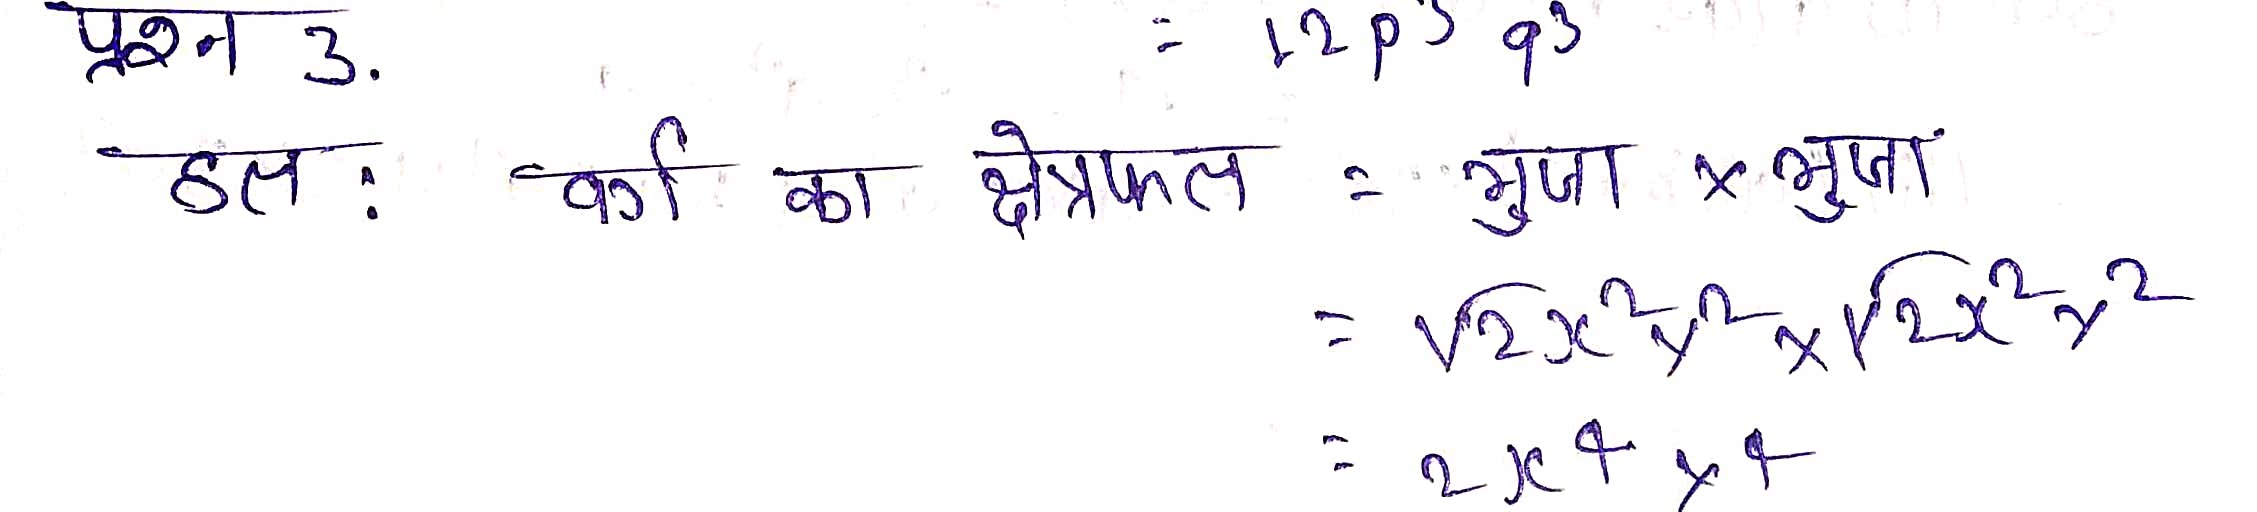 प्रश्न 3. = 12p³ q³
हल : वर्ग का क्षेत्रफल = भुजा × भुजा
= √2x²y² × √2x²y²
= 2x⁴ y⁴